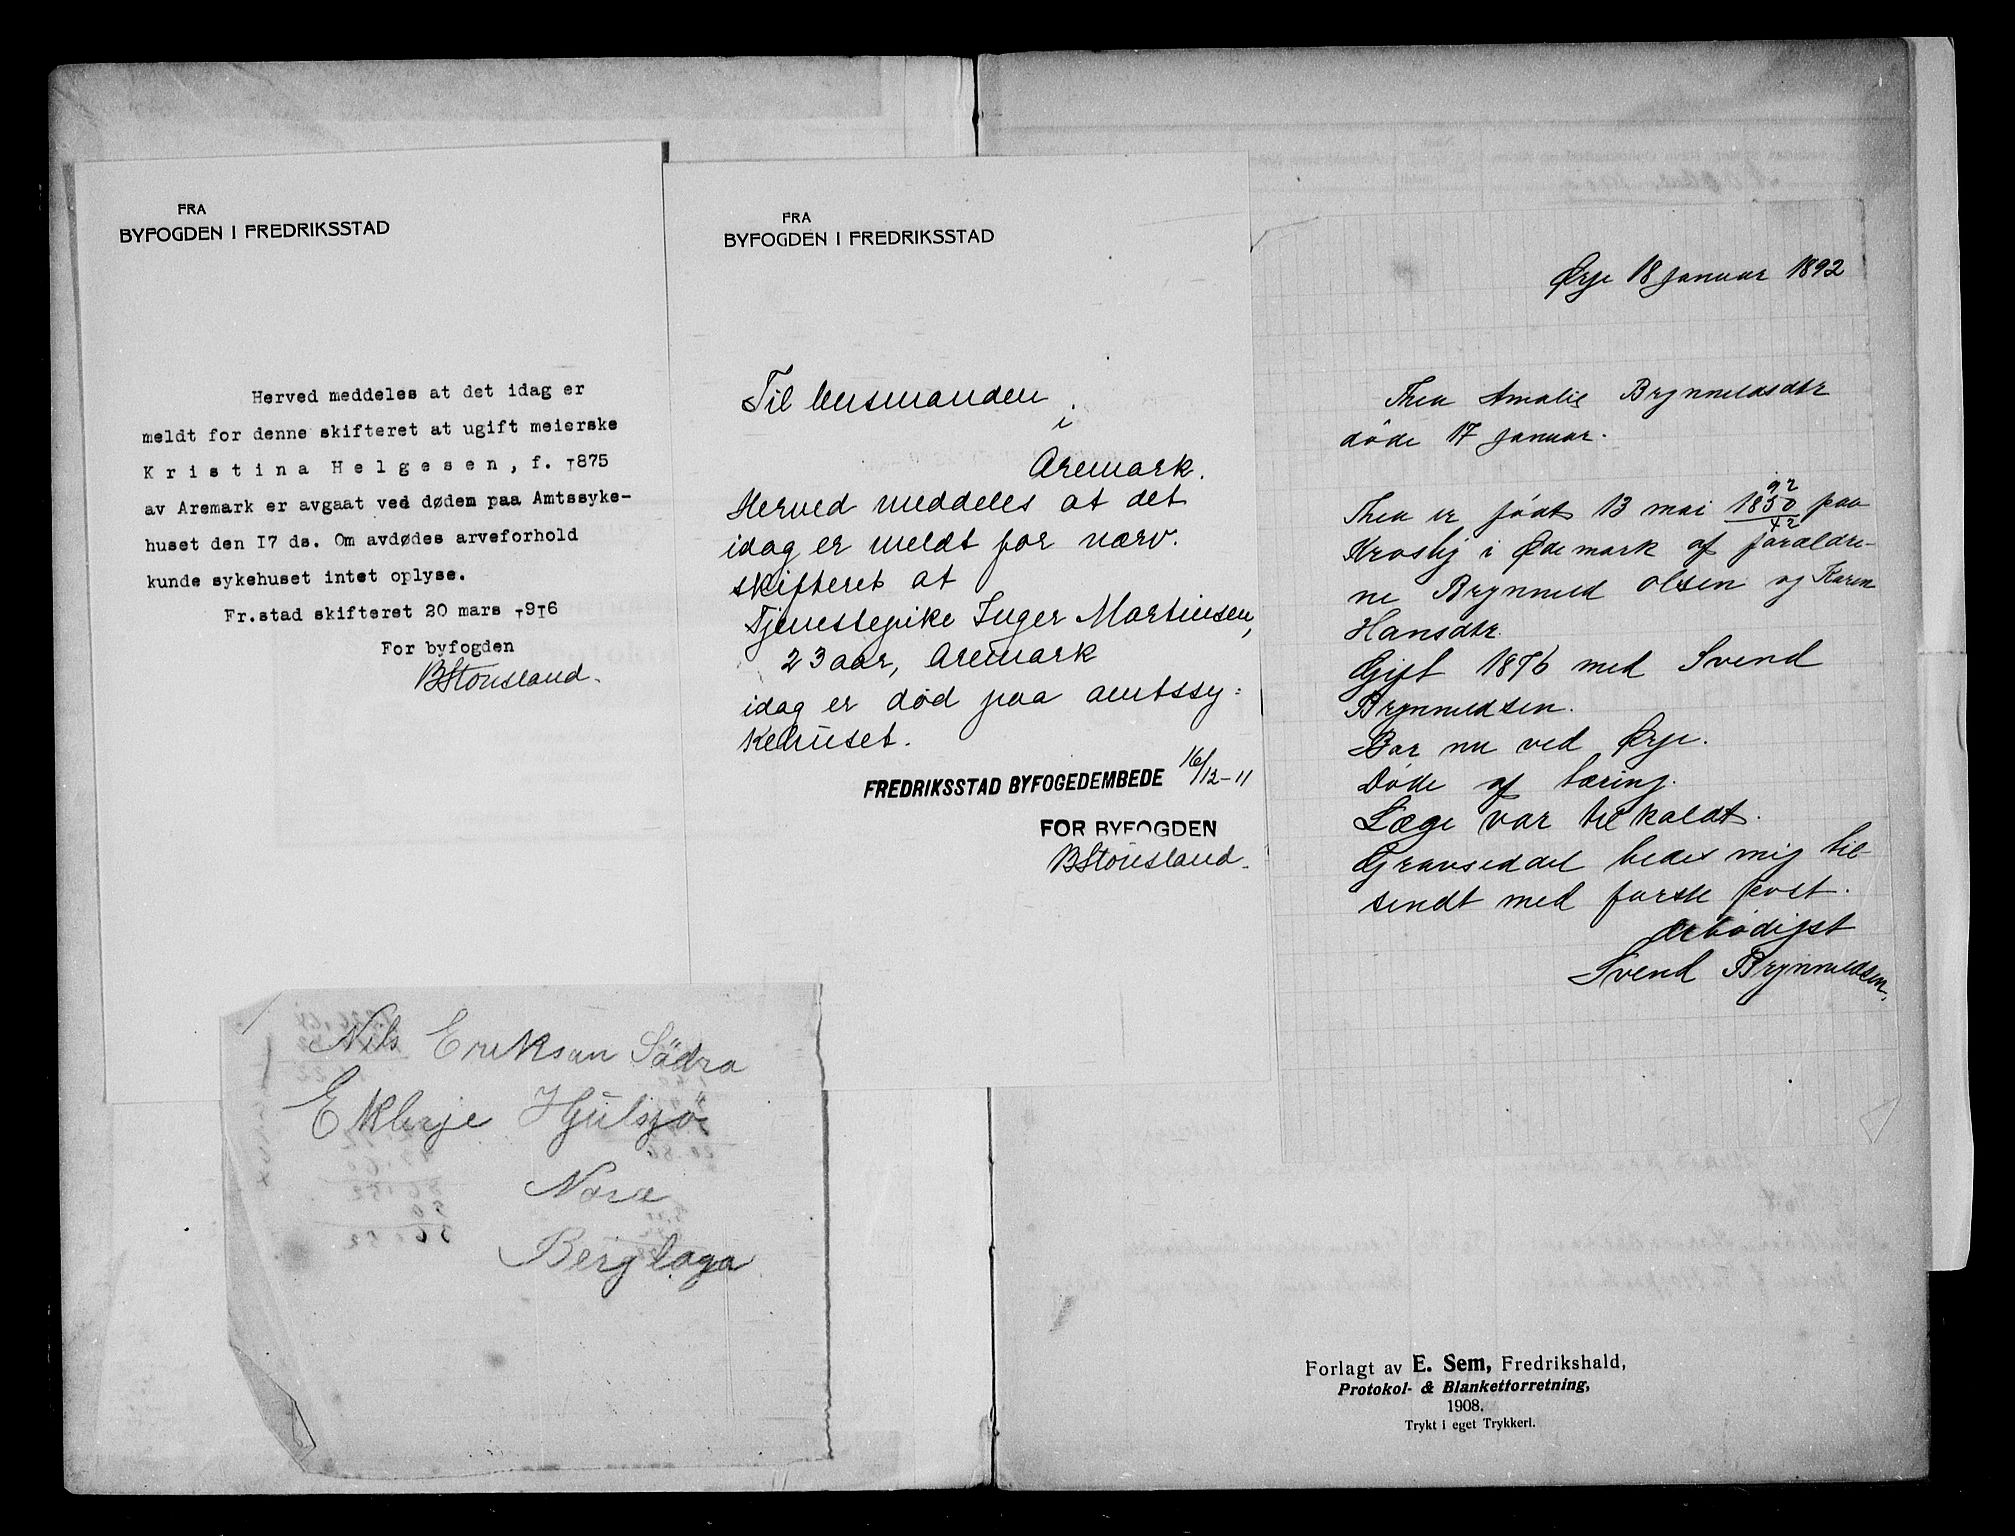 FRA
BYFOGDEN I FREDRIKSSTAD
Herved meddeles at det idag er
meldt for denne skifteret at ugift meierske
Kristina Helgesen, f. 1875
av Aremark er avgaat ved døden paa Amtssyke-
huset den 17 ds. Om avdødes arveforhold
kunde sykehuset intet oplyse.
Fr.stad skifteret 20 mars 1916
For byfogden
BStousland.
FRA
BYFOGDEN I FREDRIKSSTAD
Til lensmanden
i
Aremark.
Herved meddeles at det
idag er meldt for nærv.
skifteret at
Tjenestepike Inger Martinsen,
23 aar, Aremark
idag er død paa amtssy=
kehuset.
FREDRIKSSTAD BYFOGEDEMBEDE 16/12-11
FOR BYFOGDEN
BStousland.
Ørje 18 januar 1892
Thea Amalie Brynmeldsdtr
døde 17 januar.
92
Thea er født 13 mai 1850 paa
42
Krosby i Ødemark af forældre-
ne Brynmeld Olsen og Karen
Hansdtr.
Gift 1876 med Svend
Brynmeldsen.
Bor nu ved Ørje.
Døde af tæring.
Læge var tilkaldt.
Gravseddel bedes mig til-
sendt med første post.
Ærbødigst
Svend Brynmeldsen.
Nils Eriksan Södra
Ekberje Hjulsjo
Nora
Berglaga
Forlagt av E. Sem, Fredrikshald,
Protokol- & Blanketforretning,
1908.
Trykt i eget Trykkeri.